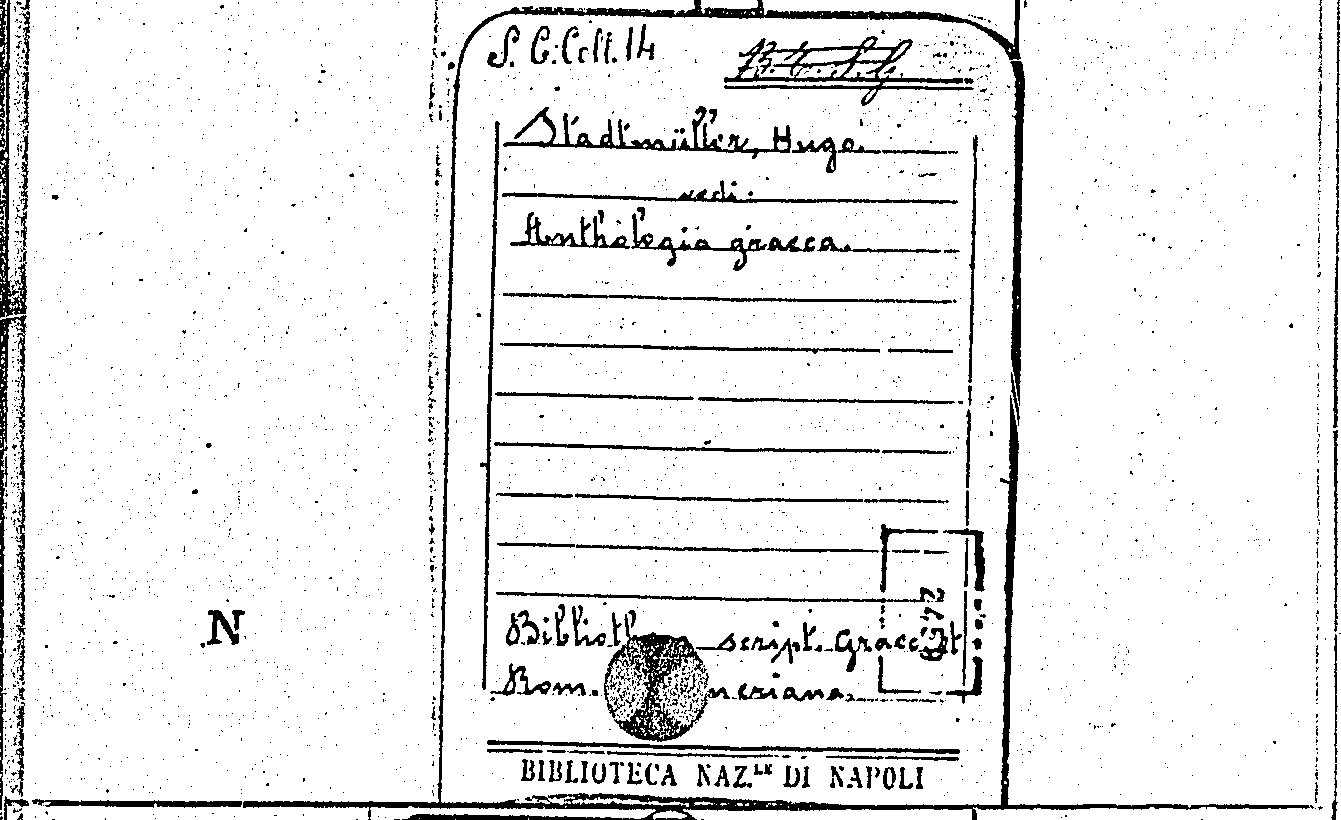 S. C. Coll. 14
Stadtmüller, Hugo.
vedi:
Anthologia graeca.
N
script. Graec. et
Rom. neriana.
BIBLIOTECA NAZ.LE DI NAPOLI